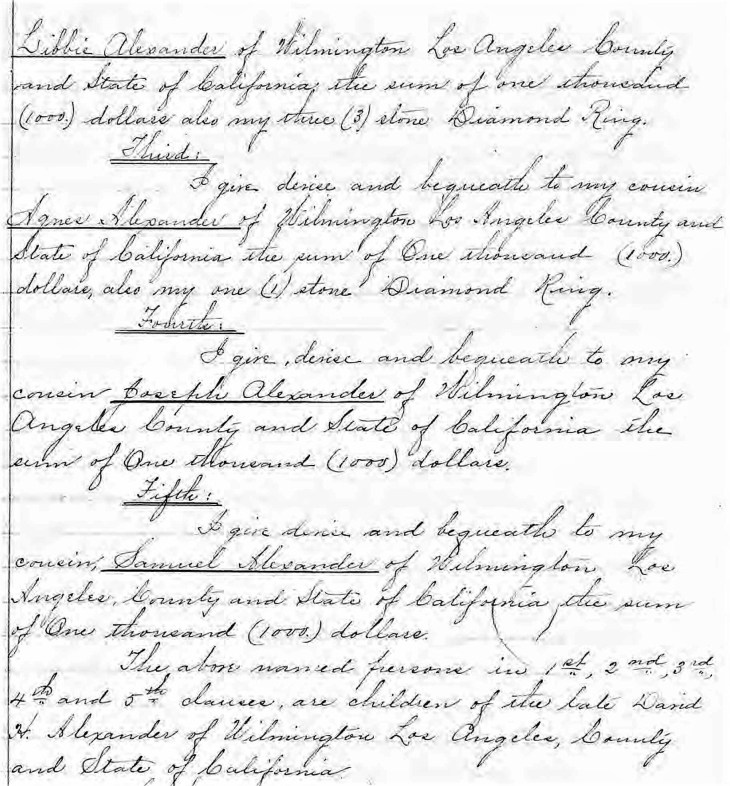 Libbie Alexander of Wilmington Los Angeles County
and State of California, the sum of one thousand
(1000.) dollars also my three (3) stone Diamond Ring.
Third:
I give devise and bequeath to my cousin
Agnes Alexander of Wilmington Los Angeles County and
State of California the sum of One thousand (1000.)
dollars, also my one (1) stone Diamond Ring.
Fourth:
I give, devise and bequeath to my
cousin Joseph Alexander of Wilmington Los
Angeles County and State of California the
sum of One thousand (1000) dollars.
Fifth:
I give devise and bequeath to my
cousin, Samuel Alexander of Wilmington Los
Angeles, County and State of California, the sum
of One thousand (1000.) dollars.
The above named persons in 1st, 2nd, 3rd,
4th and 5th clauses, are children of the late David
W. Alexander of Wilmington Los Angeles, County
and State of California